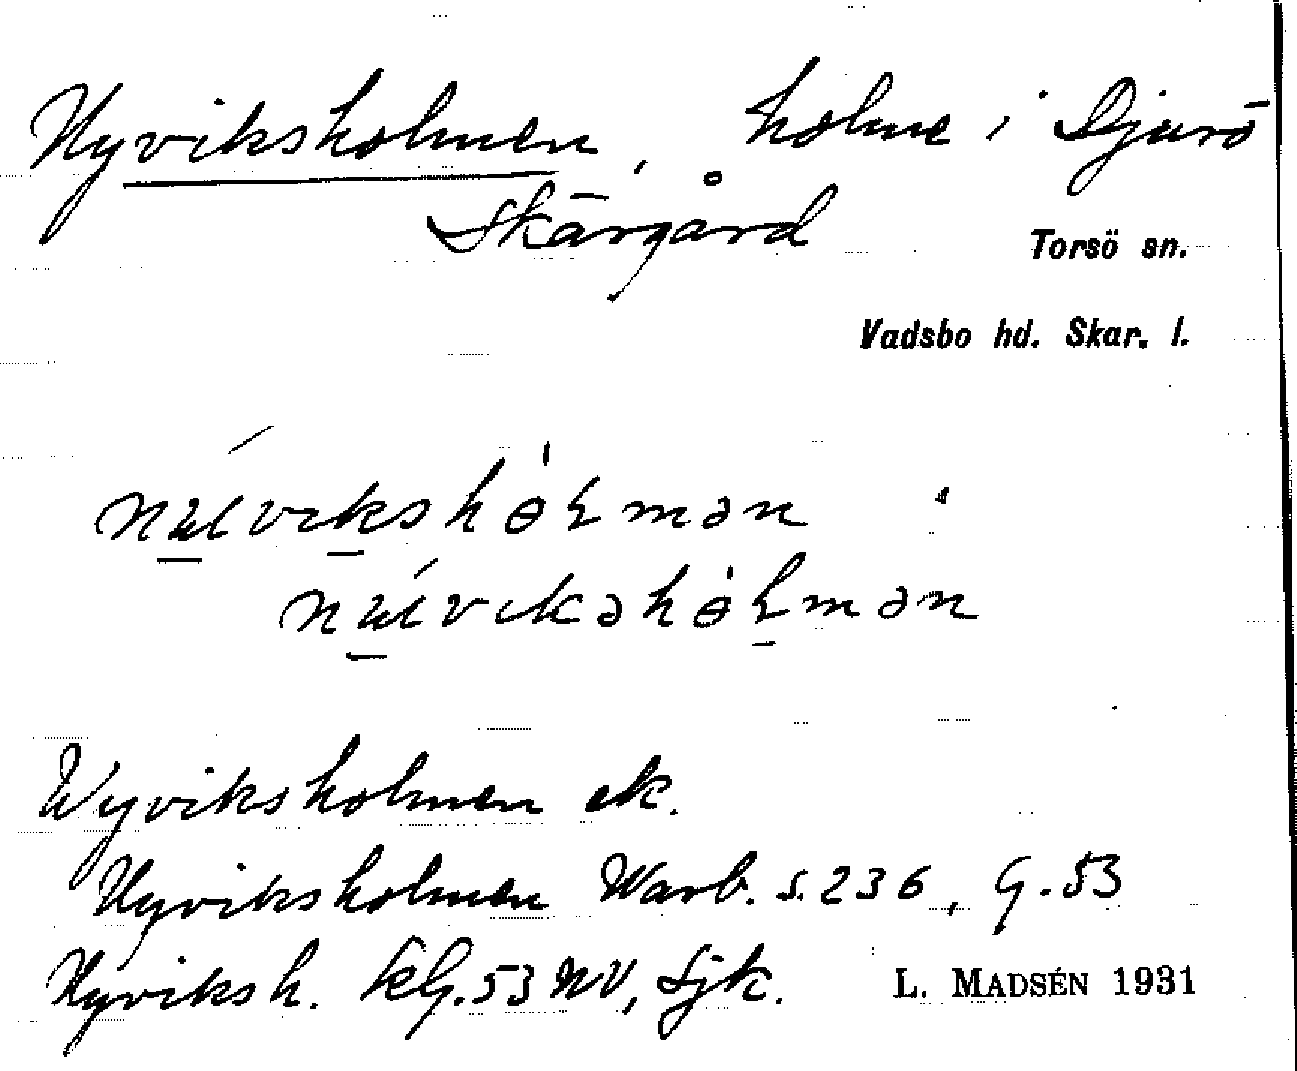 Nyviksholmen, holme i Djurö
Skärgård
Torsö sn.
Vadsbo hd. Skar. l.
Wyviksholmen ek.
Nyviksholmen Warb. s. 236, G. 53
Nyviksh. kG. 53 NV, Sjk.
L. MADSÉN 1931